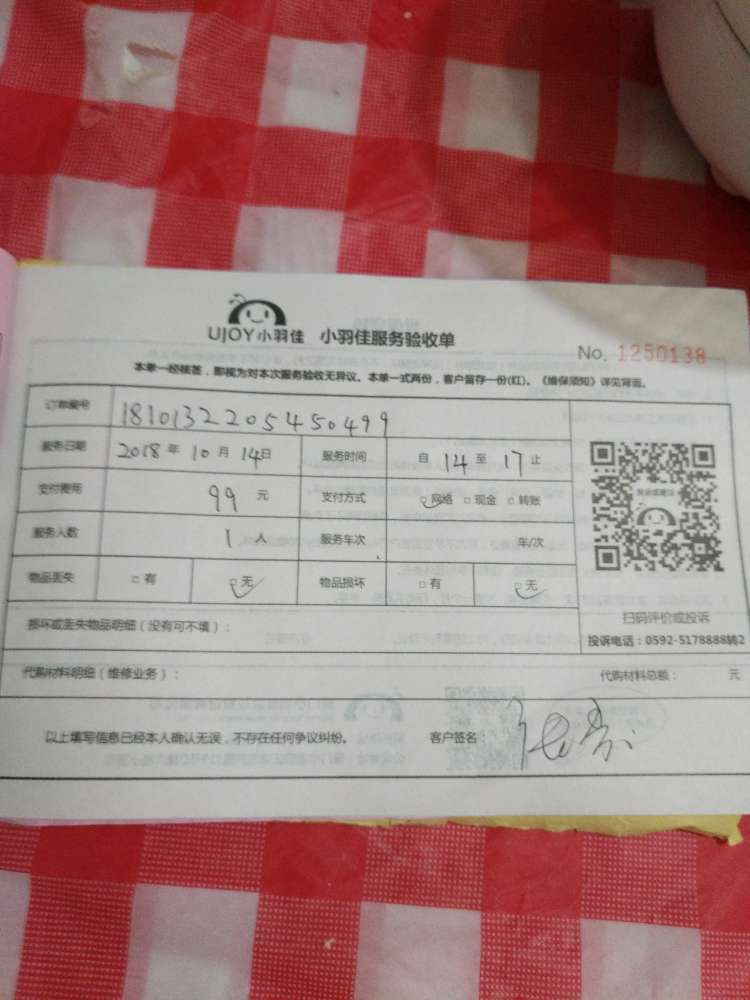 UJOY小羽佳 小羽佳服务验收单
No. 1250138
本单一经核签,即视为对本次服务验收无异议。本单一式两份,客户留存一份(红)。《维保须知》详见背面。
订单编号 1810132205450499
服务日期 2018年10月14日 服务时间 自14至17止
支付费用 99元 支付方式 网络 现金 转账
服务人数 1人 服务车次 车/次
物品丢失 有 无 物品损坏 有 无
扫码评价或投诉
损坏或丢失物品明细(没有可不填):
投诉电话:0592-5178888转2
代购材料明细(维修业务): 代购材料总额: 元
以上填写信息已经本人确认无误,不存在任何争议纠纷。 客户签名: